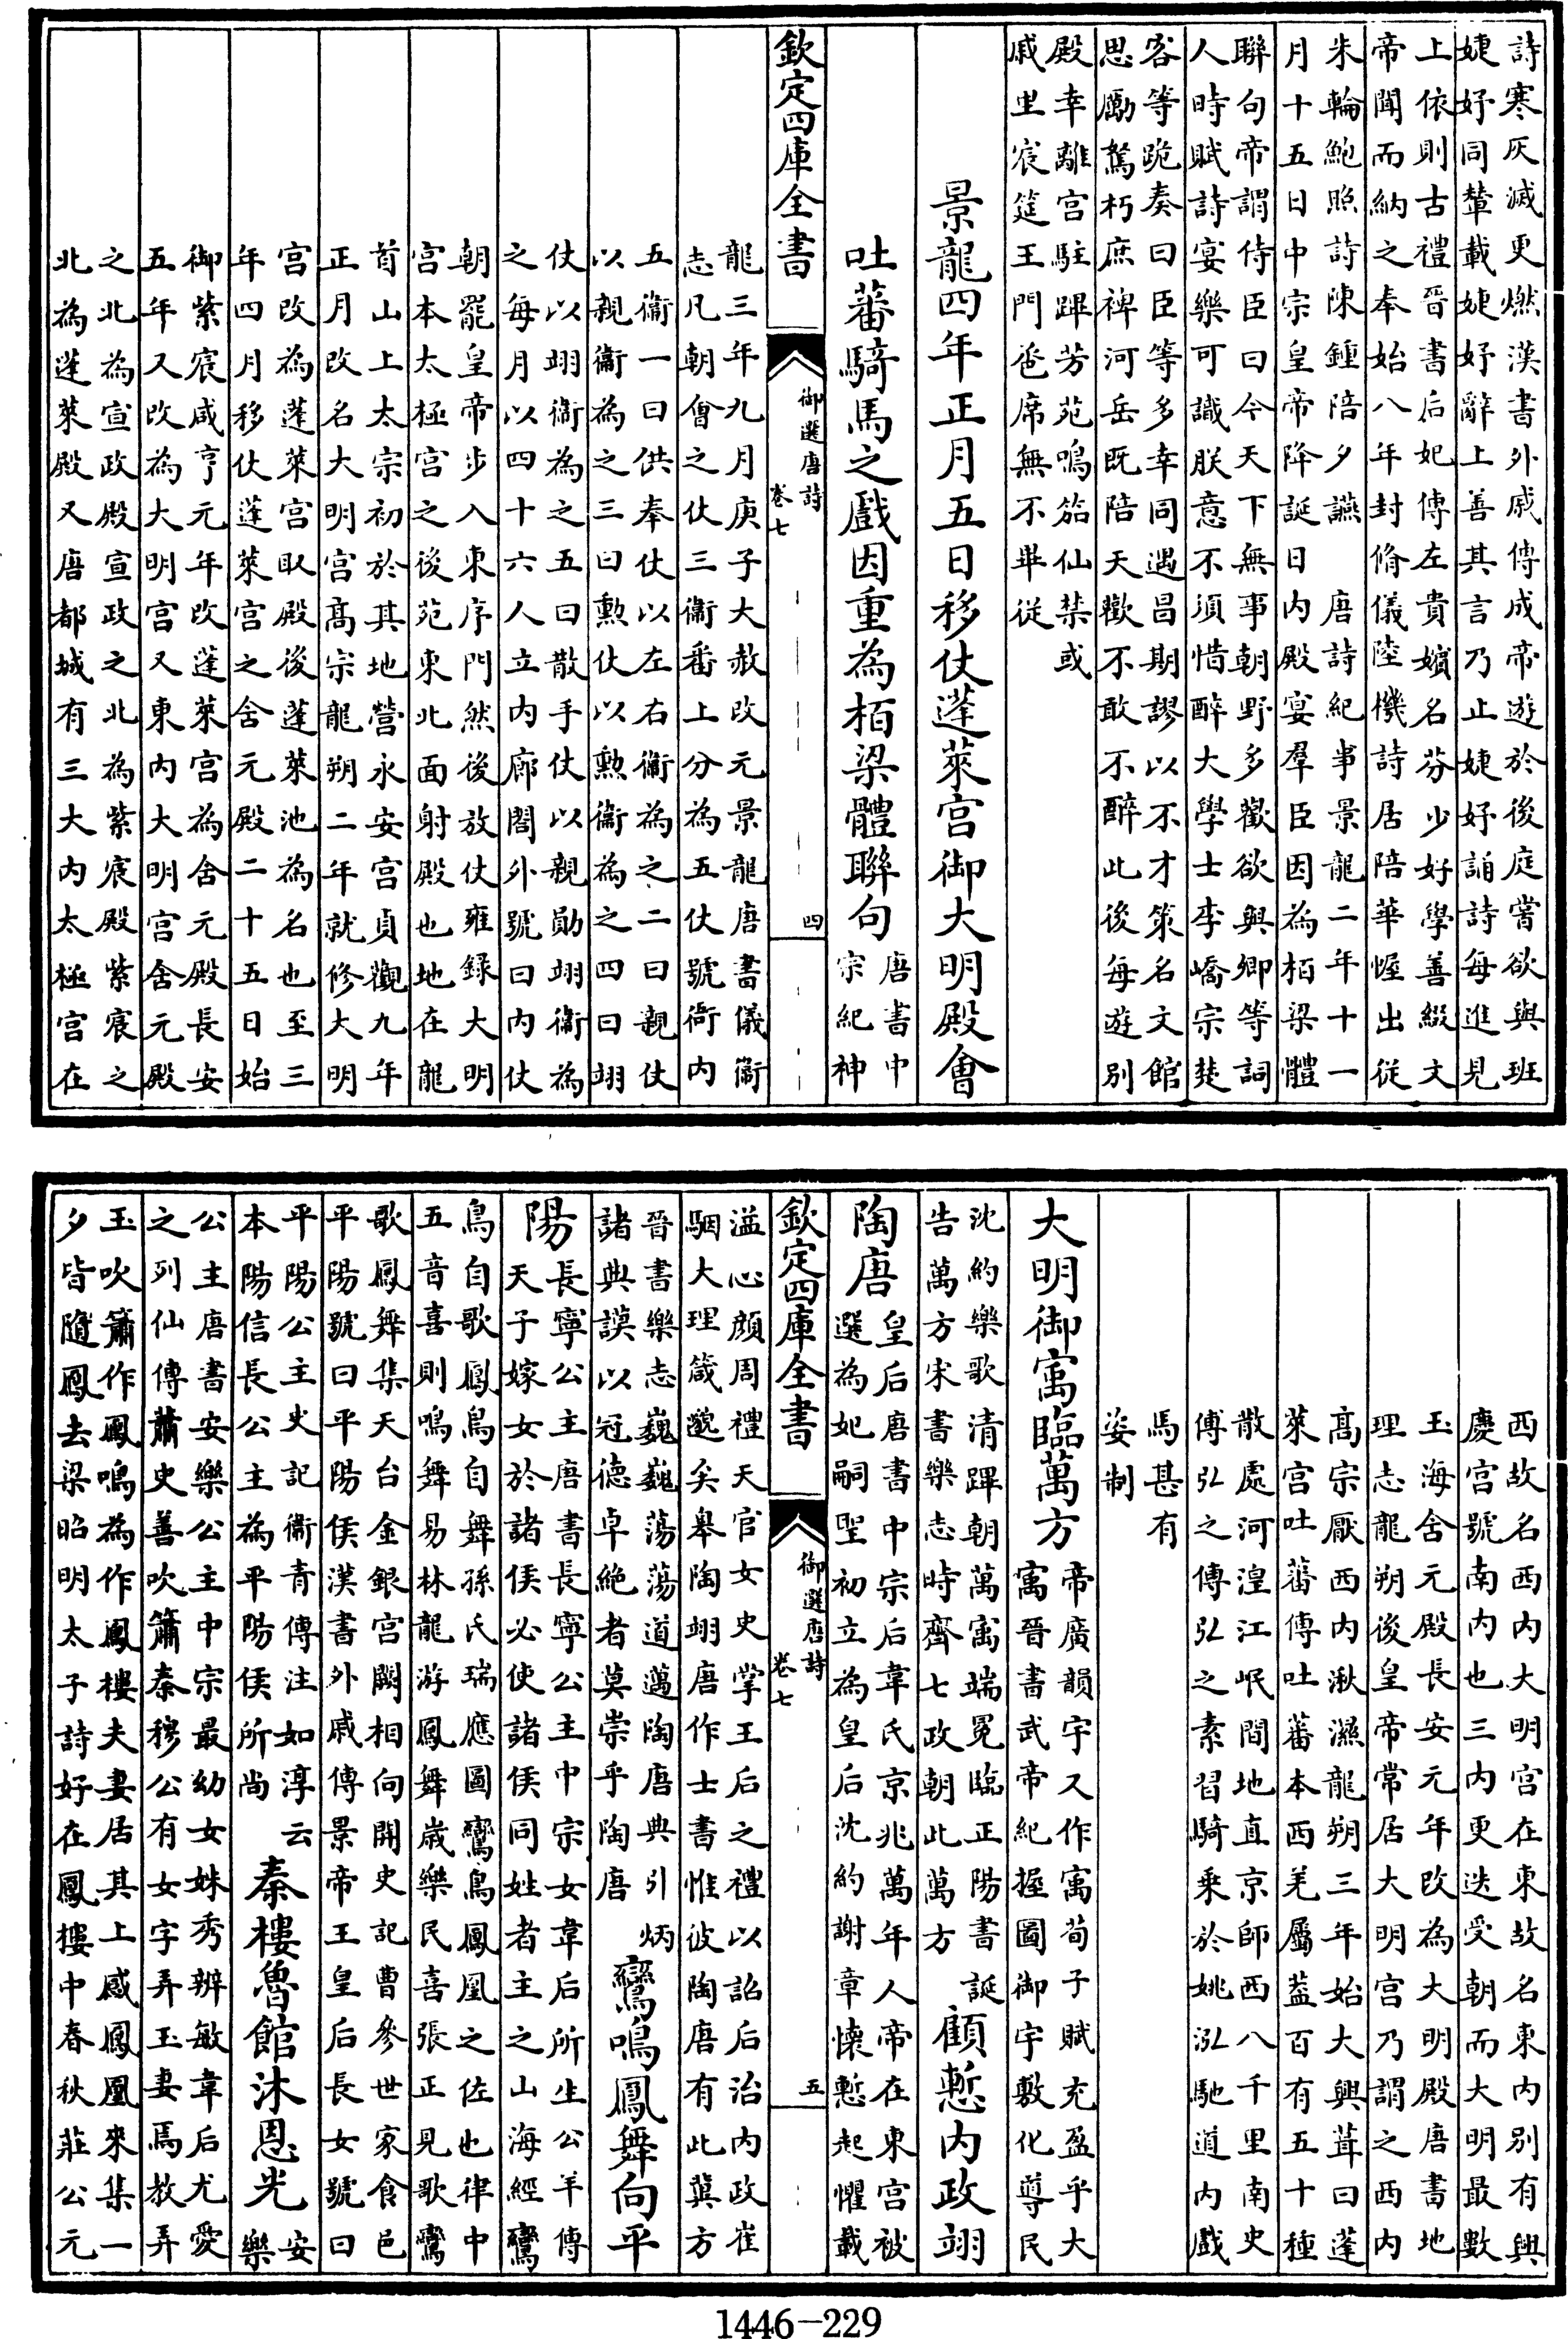 詩寒灰滅更燃漢書外戚傳成帝遊於後庭嘗欲與班
婕妤同輦載婕妤辭上善其言乃止婕妤誦詩每進見
上依則古禮晉書后妃傳左貴嬪名芬少好學善綴文
帝聞而納之奉始八年封脩儀陸機詩居陪華幄出從
朱輪鮑照詩陳鍾陪夕讌　唐詩紀事景龍二年十一
月十五日中宗皇帝降誕日内殿宴羣臣因為栢梁體
聯句帝謂侍臣曰今天下無事朝野多歡欲與卿等詞
人時賦詩宴樂可識朕意不須惜醉大學士李嶠宗楚
客等跪奏曰臣等多幸同遇昌期謬以不才策名文館
思勵駑朽庶裨河岳既陪天歡不敢不醉此後每遊別
殿幸離宫駐蹕芳苑鳴笳仙禁或
戚里宸筵王門巹席無不畢從
景龍四年正月五日移仗蓬萊宫御大明殿會
吐蕃騎馬之戲因重為栢梁體聯句
唐書中
宗紀神
欽定四庫全書
御選唐詩
卷七
四
龍三年九月庚子大赦改元景龍唐書儀衞
志凡朝會之仗三衞番上分為五仗號衙内
五衞一曰供奉仗以左右衞為之二曰親仗
以親衞為之三曰勲仗以勲衞為之四曰翊
仗以翊衞為之五曰散手仗以親勛翊衞為
之每月以四十六人立内廊閤外號曰内仗
朝罷皇帝步入東序門然後放仗雍録大明
宫本太極宫之後苑東北面射殿也地在龍
首山上太宗初於其地營永安宫貞觀九年
正月改名大明宫高宗龍朔二年就修大明
宫改為蓬萊宫取殿後蓬萊池為名也至三
年四月移仗蓬萊宫之含元殿二十五日始
御紫宸咸亨元年改蓬萊宫為含元殿長安
五年又改為大明宫又東内大明宫含元殿
之北為宣政殿宣政之北為紫宸殿紫宸之
北為蓬萊殿又唐都城有三大内太極宫在
西故名西内大明宫在東故名東内别有興
慶宫號南内也三内更迭受朝而大明最數
玉海含元殿長安元年改為大明殿唐書地
理志龍朔後皇帝常居大明宫乃謂之西内
高宗厭西内湫濕龍朔三年始大興葺曰蓬
萊宫吐蕃傳吐蕃本西羌屬葢百有五十種
散處河湟江岷間地直京師西八千里南史
傅弘之傳弘之素習騎乗於姚泓馳道内戲
馬甚有
姿制
大明御㝢臨萬方
帝廣韻宇又作㝢荀子賦充盈乎大
㝢晉書武帝紀握圖御宇敷化導民
沈約樂歌清蹕朝萬㝢端冕臨正陽書　誕
告萬方宋書樂志時齊七政朝此萬方
顧慙内政翊
陶唐
皇后唐書中宗后韋氏京兆萬年人帝在東宫被
選為妃嗣聖初立為皇后沈約謝章懷慙起懼載
欽定四庫全書
御選唐詩
卷七
五
溢心顔周禮天官女史掌王后之禮以詔后治内政崔
駰大理箴邈矣臯陶翊唐作士書惟彼陶唐有此冀方
晉書樂志巍巍蕩蕩道邁陶唐典引　炳
諸典謨以冠德卓絶者莫崇乎陶唐
鸞鳴鳳舞向平
陽
長寧公主唐書長寧公主中宗女韋后所生公羊傳
天子嫁女於諸侯必使諸侯同姓者主之山海經鸞
鳥自歌鳳鳥自舞孫氏瑞應圖鸞鳥鳳凰之佐也律中
五音喜則鳴舞易林龍游鳳舞歳樂民喜張正見歌鸞
歌鳳舞集天台金銀宫闕相向開史記曹參世家食邑
平陽號曰平陽侯漢書外戚傳景帝王皇后長女號曰
平陽公主史記衞青傳注如淳　云
本陽信長公主為平陽侯所尚
秦樓魯館沐恩光
安
樂
公主唐書安樂公主中宗最幼女姝秀辨敏韋后尤愛
之列仙傳蕭史善吹簫秦穆公有女字弄玉妻焉教弄
玉吹簫作鳳鳴為作鳳樓夫妻居其上感鳳凰來集一
夕皆隨鳳去梁昭明太子詩好在鳳樓中春秋莊公元
1446-229